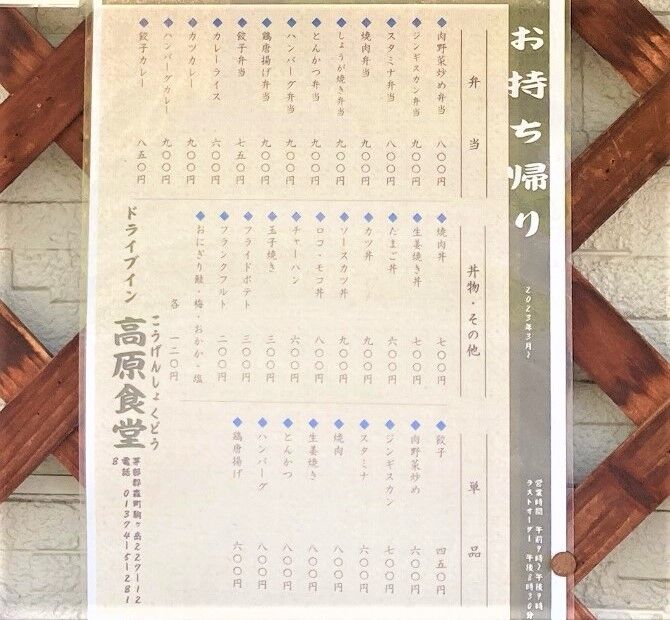 お持ち帰り
2023年3月~
営業時間 午前9時~午後9時
ラストオーダー 午後8時30分
弁当
◆肉野菜炒め弁当 八〇〇円
◆ジンギスカン弁当 九〇〇円
◆スタミナ弁当 八〇〇円
◆焼肉弁当 九〇〇円
◆しょうが焼き弁当 九〇〇円
◆とんかつ弁当 九〇〇円
◆ハンバーグ弁当 九〇〇円
◆鶏唐揚げ弁当 九〇〇円
◆餃子弁当 七五〇円
◆カレーライス 六〇〇円
◆カツカレー 九〇〇円
◆ハンバーグカレー 九〇〇円
◆餃子カレー 八五〇円
丼物・その他
◆焼肉丼 七〇〇円
◆生姜焼き丼 七〇〇円
◆たまご丼 六〇〇円
◆カツ丼 九〇〇円
◆ソースカツ丼 九〇〇円
◆ロコ・モコ丼 八〇〇円
◆チャーハン 六〇〇円
◆玉子焼き 三〇〇円
◆フライドポテト 三〇〇円
◆フランクフルト 二〇〇円
◆おにぎり鮭・梅・おかか・塩
各 一二〇円
単品
◆餃子 四五〇円
◆肉野菜炒め 六〇〇円
◆ジンギスカン 七〇〇円
◆スタミナ 六〇〇円
◆焼肉 八〇〇円
◆生姜焼き 八〇〇円
◆とんかつ 八〇〇円
◆ハンバーグ 八〇〇円
◆鶏唐揚げ 六〇〇円
ドライブイン
こうげんしょくどう
高原食堂
茅部郡森町駒ヶ岳227-128
電話